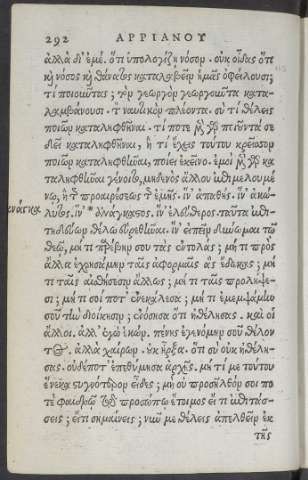 292 ΑΡΡΙΑΝΟΥ
ἀλλὰ δι' ἐμέ. ὅτι ὑπολογίζῃ νόσον. οὐκ οἶδας ὅτι
κὴ νόσος κὴ θάνατος καταλαβεῖν ἡμᾶς ὀφείλουσι;
τί ποιοῦντας; τὸν γεωργὸν γεωργοῦντα κατα-
λαμβάνουσι. τ ναυτικὸν πλέοντα. σὺ τί θέλεις
ποιῶν καταληφθῆναι. τί ποτε μ γδ ποιοῦντά σε
δεῖ καταληφθῆναι, ἢ τί ἔχεις τούτου κρεῖσσον
ποιῶν καταληφθῆναι, ποίει ἐκεῖνο. ἐμοὶ μ γδ κα
ταληφθῆναι γένοιτο, μηδενὸς ἄλλου ἐπιμελουμέ
νῳ, ἢ τ προαιρέσεως τ ἐμῆς. ἵν' ἀπαθὴς. ἵν' ἀκώ-
λυτος. ἵν' ἀνάγκαστος. ἵν' ἐλεύθερος. ταῦτα ἐπι-
τηδεύων θέλω εὑρεθῆναι. ἵν' εἰπεῖν δύνωμαι τῷ
θεῷ, μή τι παρέβην σου τὰς ἐντολάς; μή τι πρὸς
ἄλλα ἐχρησάμην ταῖς ἀφορμαῖς ἃς ἔδωκας; μή
τι ταῖς αἰσθήσεσιν ἄλλως; μή τι ταῖς προλήψε-
σι; μή τί σοί ποτ' ἐνεκάλεσα; μή τι ἐμεμψάμην
σου τὴν διοίκησιν; ἐνόσησα ὅτι ἠθέλησας. καὶ οἱ
ἄλλοι. ἀλλ' ἐγὼ ἑκών. πένης ἐγενόμην σοῦ θέλον
τος. ἀλλὰ χαίρων. οὐκ ἦρξα. ὅτι σὺ οὐκ ἠθέλη-
σας. οὐδέποτ' ἐπεθύμησα ἀρχῆς. μή τί με τούτου
ἕνεκα στυγνότερον εἶδες; μὴ οὐ προσῆλθόν σοί πο
τε φαιδρῷ τῷ προσώπῳ ἕτοιμος εἴ τι ἐπιτάσ-
σεις; εἴ τι σημαίνεις; νῦν με θέλεις ἀπελθεῖν ἐκ
τῆς